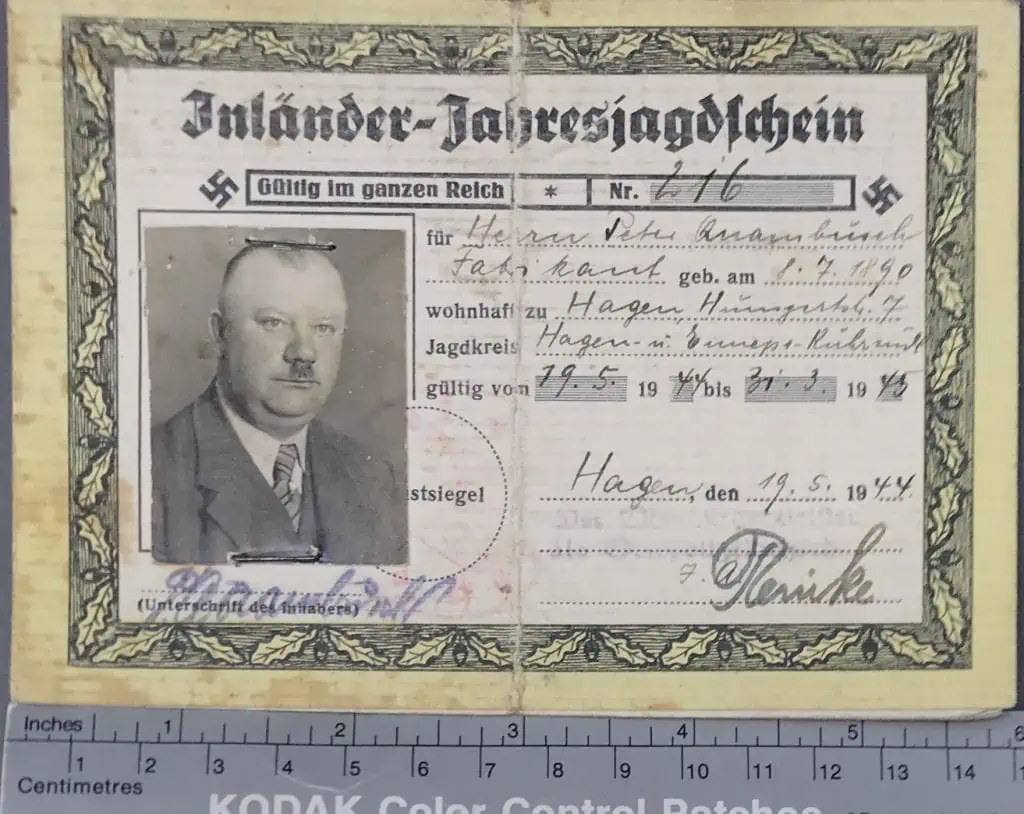 Inländer-Jahresjagdschein
Gültig im ganzen Reich * Nr. 216
für Herrn Peter Quambusch
Fabrikant geb. am 8.7.1890
wohnhaft zu Hagen, 7
Jagdkreis Hagen- u. Ennepe-Ruhr
gültig von 19.5. 1944 bis 31.3. 1945
Hagen, den 19.5. 1944.
stsiegel
(Unterschrift des Inhabers)
Inches 1 2 3 4 5 6
1 2 3 4 5 6 7 8 9 10 11 12 13 14
Centimetres
KODAK Color Control Patches